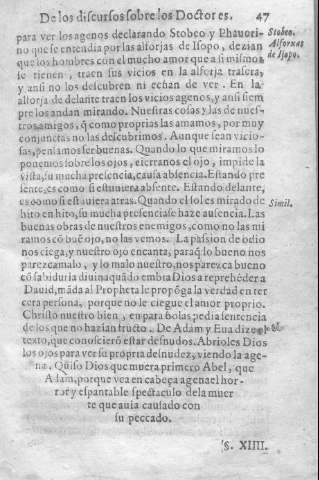 De los discursos sobre los Doctores. 47
para ver los agenos declarando Stobeo y Phauori-
no que se entendia por las alforjas de Isopo, dezian
que los hombres con el mucho amor que a si mismos
se tienen, traen sus vicios en la alforja trasera,
y ansi no los descubren ni echan de ver. En la
alforja de delante traen los vicios agenos, y ansi siem
pre los andan mirando. Nuestras cosas y las de nues-
tros amigos, q̃ como proprias las amamos, por muy
conjunctas no las descubrimos. Aunque sean vicio-
sas, pensamos ser buenas. Quando lo que miramos lo
ponemos sobre los ojos, cierranos el ojo, impide la
vista, su mucha presencia, causa absencia. Estando pre
sente, es como si estuuiera absente. Estando delante,
es como si estuuiera atras. Quando el sol es mirado de
hito en hito, su mucha presencia se haze ausencia. Las
buenas obras de nuestros enemigos, como no las mi
ramos cõ buẽ ojo, no las vemos. La passion de odio
nos ciega, y nuestro ojo encanta, paraq̃ lo bueno nos
parezca malo, y lo malo nuestro, nos parezca bueno
cõ sabiduria diuina quãdo embia Dios a reprehẽder a
Dauid, mãda al Propheta le propõga la verdad en ter
cera persona, porque no le ciegue el amor proprio.
Christo nuestro bien, en parabolas pedia sentencia
de los que no hazian fructo. De Adam y Eua dize el
texto, que conocierõ estar desnudos. Abrioles Dios
los ojos para ver su propria desnudez, viendo la age-
na. Quiso Dios que muera primero Abel, que
Adam, porque vea en cabeça agena el hor-
ror y espantable spectaculo de la muer
te que auia causado con
su peccado.
§. XIIII.
Stobeo.
Alforxas
de Isopo.
Simil.